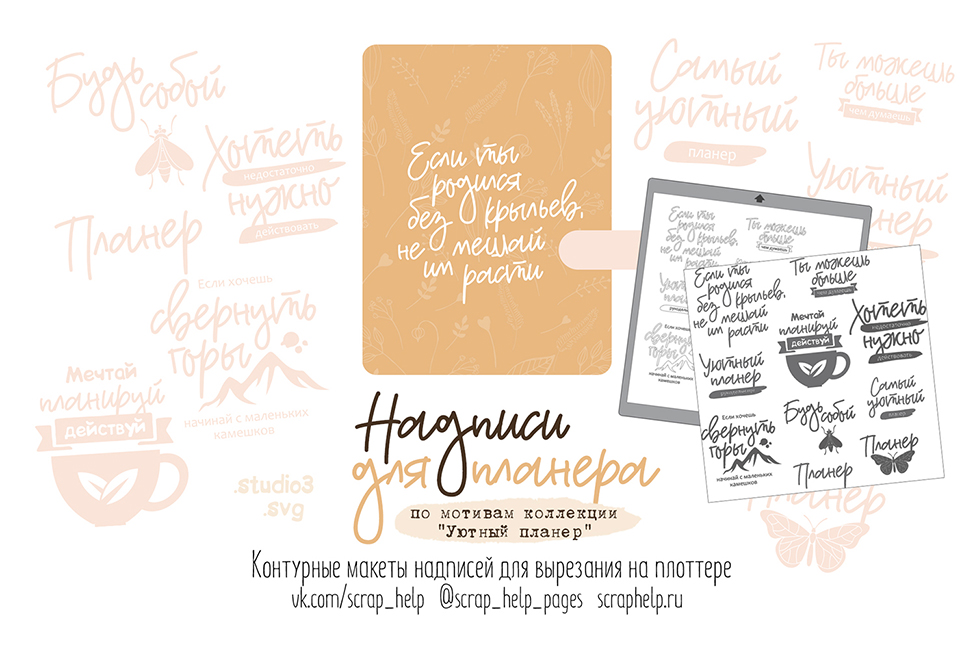 Будь
собой
Хотеть
недостаточно
нужно
действовать
Планер
Если хочешь
свернуть
горы
начинай с маленьких
камешков
Мечтай
планируй
действуй
.studio3
.svg
Если ты
родился
без крыльев,
не мешай
им расти
Самый
уютный
планер
Ты можешь
больше
чем думаешь
Уютный
Если ты
родился
без крыльев,
не мешай
им расти
Ты можешь
больше
чем думаешь
Если хочешь
свернуть
горы
начинай с маленьких
камешков
Если ты
родился
без крыльев,
не мешай
им расти
Ты можешь
больше
чем думаешь
Мечтай
планируй
действуй
Хотеть
недостаточно
нужно
действовать
Уютный
планер
Самый
уютный
планер
Если хочешь
свернуть
горы
начинай с маленьких
камешков
Будь
собой
Планер
Планер
Надписи
для планера
по мотивам коллекции
"Уютный планер"
Контурные макеты надписей для вырезания на плоттере
vk.com/scrap_help @scrap_help_pages scraphelp.ru